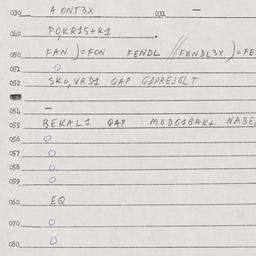 030 A ONT3X 031 –
040 PQKR15+K1
050 FAN )=FON FENDL //FENDL3X )=FE
051 O
052 SKO,VRD1 QAP GJPREJGLT
054 –
055 BEKAL1 QAP MODG1BAKL NABE
056 O
057 O
058 O
059 O
060 EQ
070 O
080 O